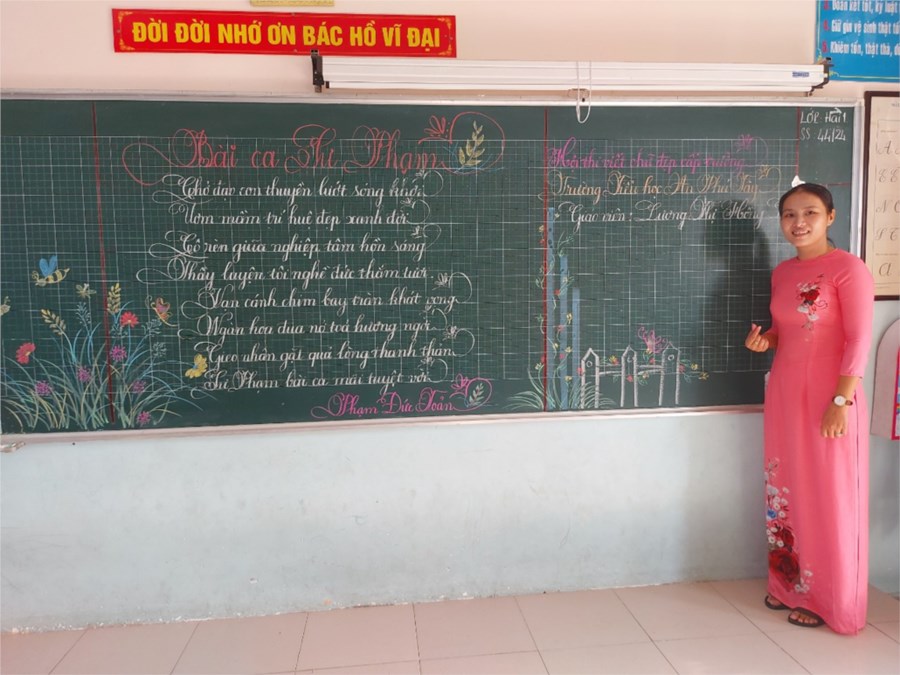 ĐỜI ĐỜI NHỚ ƠN BÁC HỒ VĨ ĐẠI
Đoàn kết tốt, kỷ luật
Giữ gìn vệ sinh thật tố
Khiêm tốn, thật thà, dũ
LỚP HAI1
SS 44/24
Bài ca Sư Phạm
Chở đạo con thuyền lướt sóng khơi
Ươm mầm trí huệ đẹp xanh đời
Cô rèn giũa nghiệp tâm hồn sáng
Thầy luyện tôi nghề đức thắm tươi
Vạn cánh chim bay tràn khát vọng
Ngàn hoa đua nở toả hương ngời
Gieo nhân gặt quả lòng thanh thản
Sư Phạm bài ca mãi tuyệt vời
Phạm Đức Toản
Hội thi viết chữ đẹp cấp trường
Trường Tiểu học An Phú Tây
Giáo viên: Lương Thị Hồng